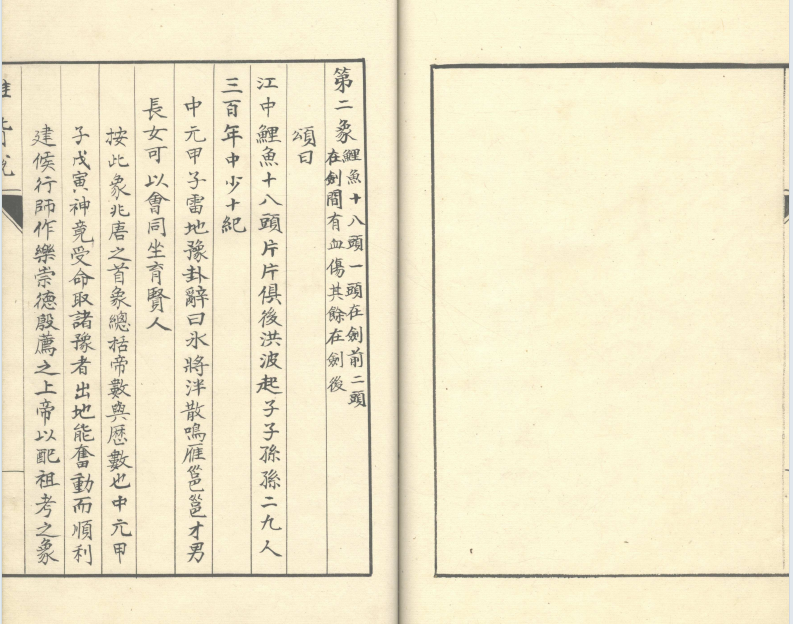 第二象
鯉魚十八頭一頭在劍前二頭
在劍間有血傷其餘在劍後
頌曰
江中鯉魚十八頭片片俱後洪波起子子孫孫二九人
三百年中少十紀
中元甲子雷地豫卦辭曰氷將泮散鳴雁邕邕才男
長女可以會同坐育賢人
按此象兆唐之首象總括帝數與歷數也中亢甲
子戊寅神竟受命取諸豫者出地能奮動而順利
建侯行師作樂崇德殷薦之上帝以配祖考之象